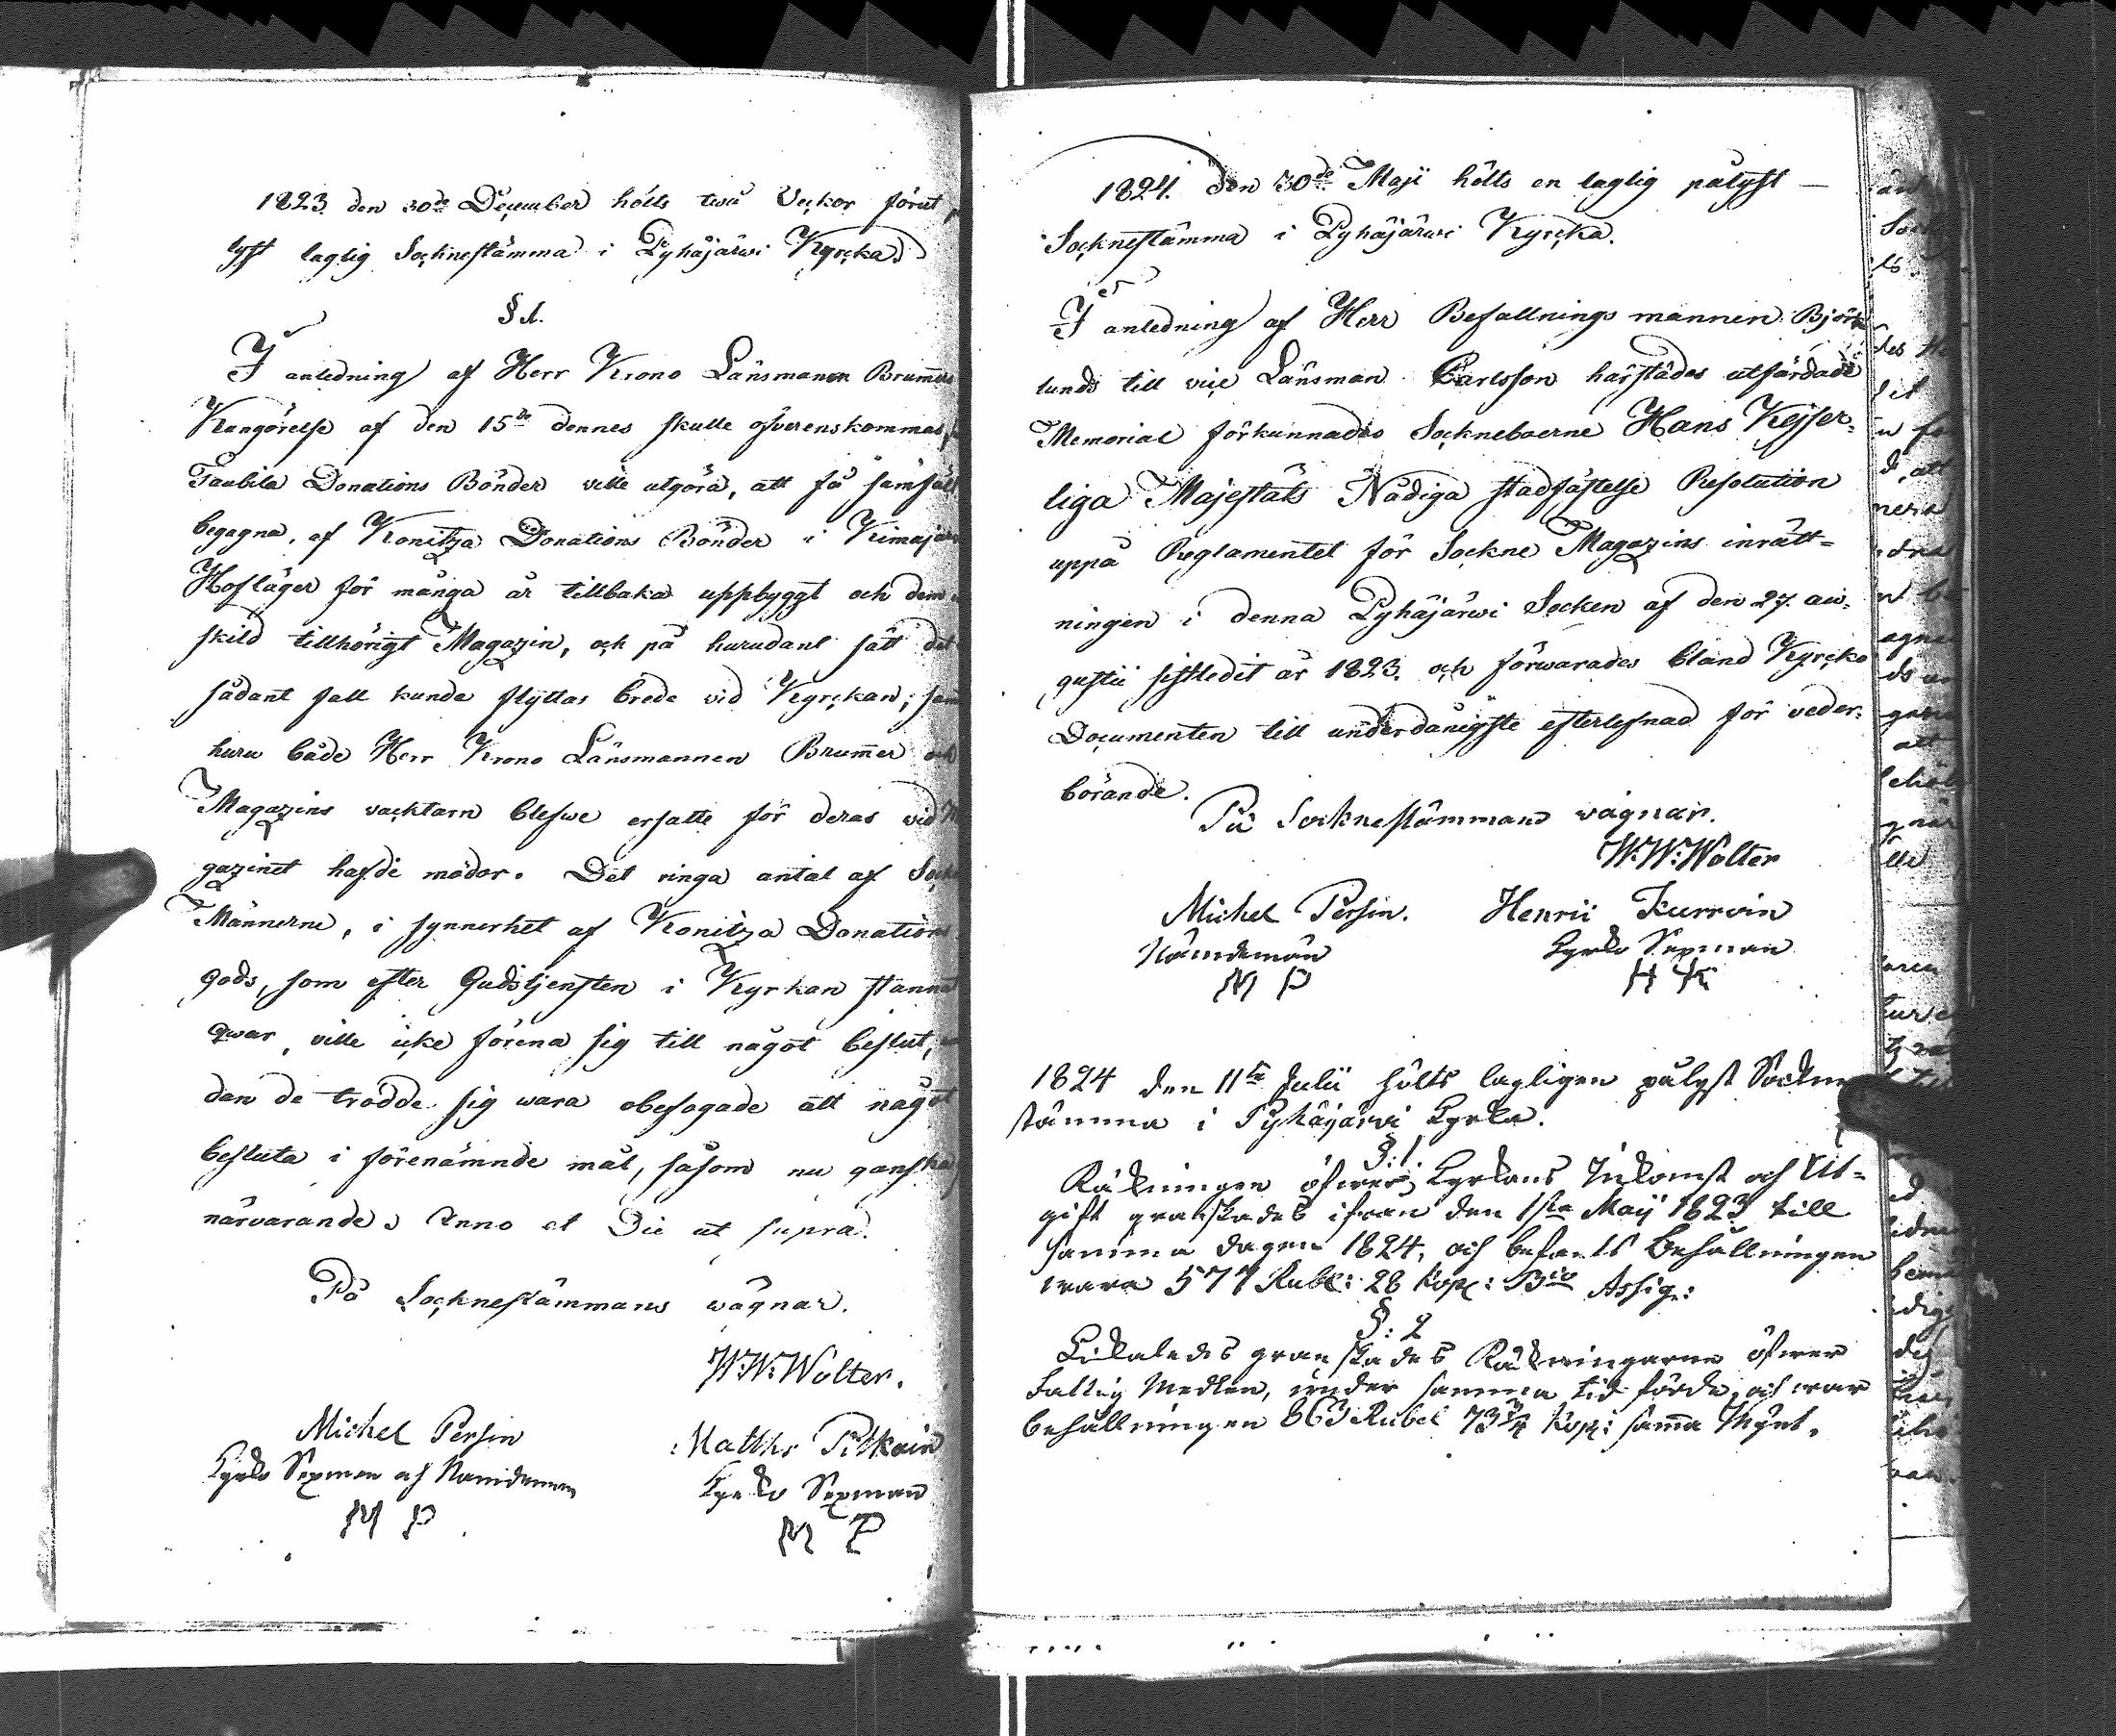 1823 den 30de December hölts twå Veckor förut
lyst laglig Socknestämma i Pyhäjärwi Kyrcka.
§ 1.
I anledning af Herr Krono Länsmanen Brummers
Kungörelse af den 15de dennes skulle öfverenskommas,
Taubila Donations Bönder ville utgöra, att få samfält
begagna, af Konitza Donations Bönder i Kimajärwi
Hofläger för många år tillbaka uppbyggt och dem
skild tillhörigt Magazin, och på hurudant sätt det
sådant fall kunde flyttas brede vid Kyrckan; samt
huru både Herr Krono Länsmannen Brummer och
Magazins vacktarn blefwe ersatte för deras vid Ma
gazinet hafde mödor. Det ringa antal af Sockne
Männerne, i synnerhet af Konitza Donations
gods, som efter Gudstjensten i Kyrkan stannat
qwar, ville icke förena sig till något beslut,
dan de trodde sig wara obefogade att något
besluta i förenämnde mål, såsom nu ganska
närvarande. Anno et Die ut supra.
På Socknestämmans wägnar.
W:W:Wolter.
Michel Persin Matths Pitkäin
Kyrko Sexman och Nämdeman Kyrko Sexman
M P M P
1824. den 30de Maji hölts en laglig pålyst
Socknestämma i Pyhäjärwi Kyrcka.
I anledning af Herr Befallnings mannen Björk
lunds till vice Länsman Carlsson härstädes utfärdade
Memorial förkunnades Sockneboerne Hans Kejser=
liga Majestäts Nådiga stadfästelse Resolution
uppå Reglamentet för Sockne Magazins inrätt=
ningen i denna Pyhäjärwi Socken af den 27. au=
gustii sistledit år 1823. och förwarades bland Kyrcko
Documenten till underdånigste efterlefnad för veder=
börande.
På Socknestämmans wägnar.
W:W:Wolter
Michel Persin. Henrii Kurroin
Nämdeman Kyrko Sexman
M P H K
1824 den 11te Julii hölts lagligen pålyst Sockne
stämma i Pyhäjärwi Kyrka.
§:1.
Räkningen öfwer Kyrkans Inkomst och Ut=
gift granskades ifrån den 1sta Maij 1823 till
samma dagen 1824, och befants Behållningen
wara 577 Rubl: 28 Kop: Bco Assig:
§: 2
Likaledes granskades Räkningarne öfwer
Fattig Medlen, under samma tid förde, och war
behållningen 863 Rubel 73 3/4 Kop: samma Mynt.